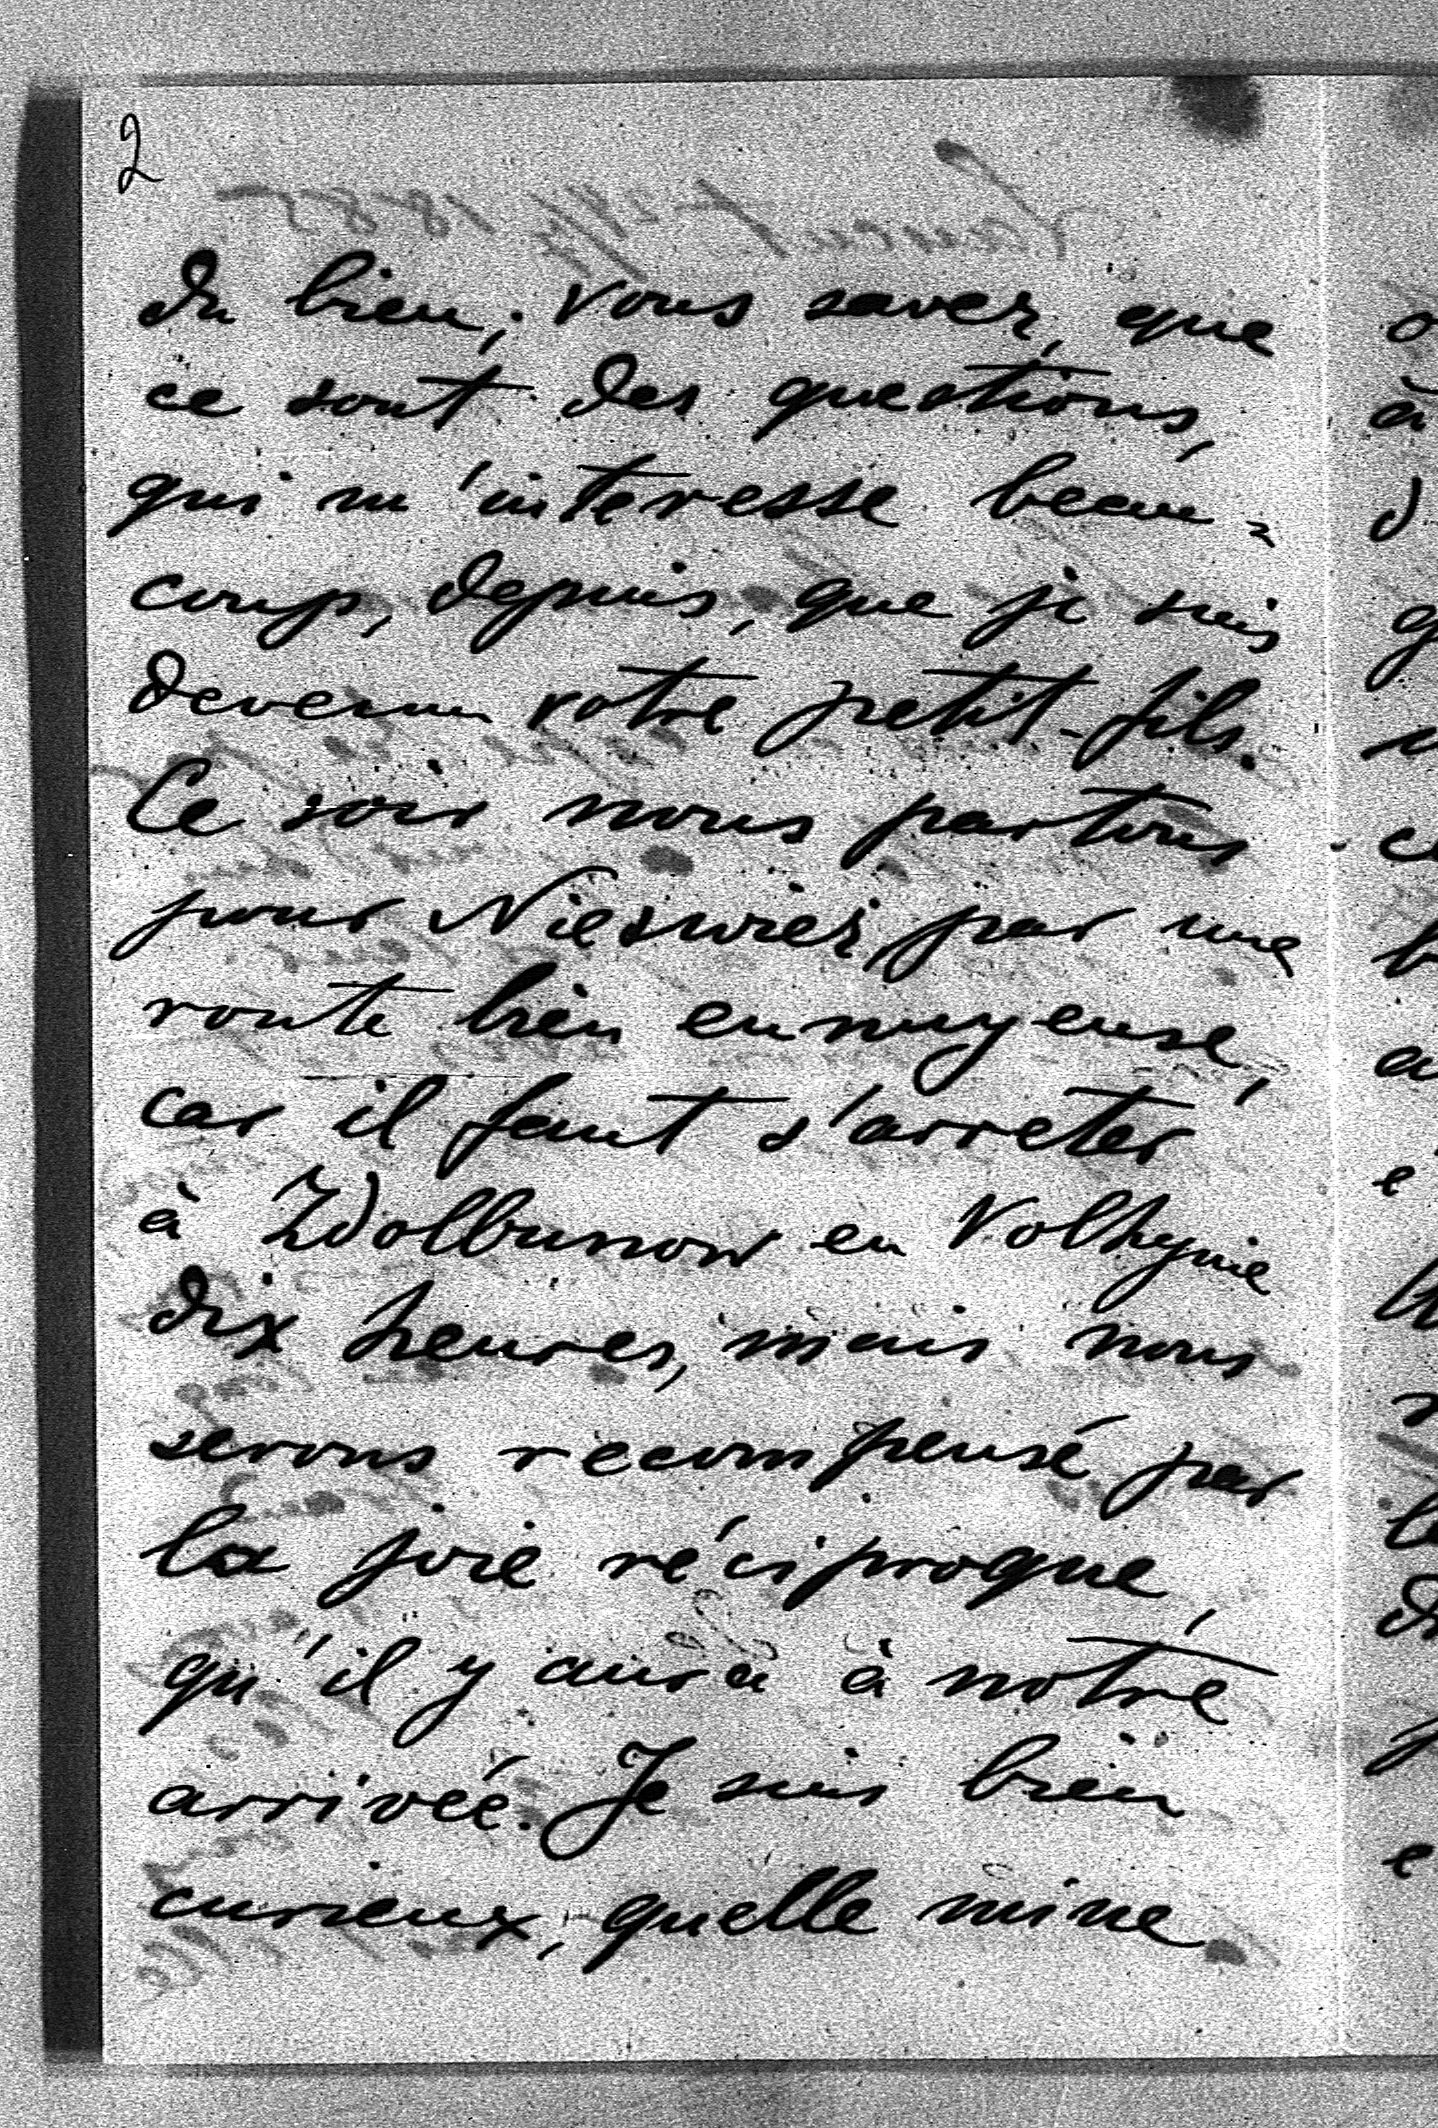 2
du bien; vous savez, que
ce sont des questions,
qui m'interesse beau-
coup, depuis, que je suis
devenu votre petit-fils.
Ce soir nous partons
pour Nieswiez, par une
route bien ennuyeuse,
car il faut s'arreter
à Zdolbunow en Volhynie
dix heures, mais nous
serons recompensé par
la joie réciproque,
qu'il y aura à notre
arriveé. Je suis bien
curieux, quelle mine